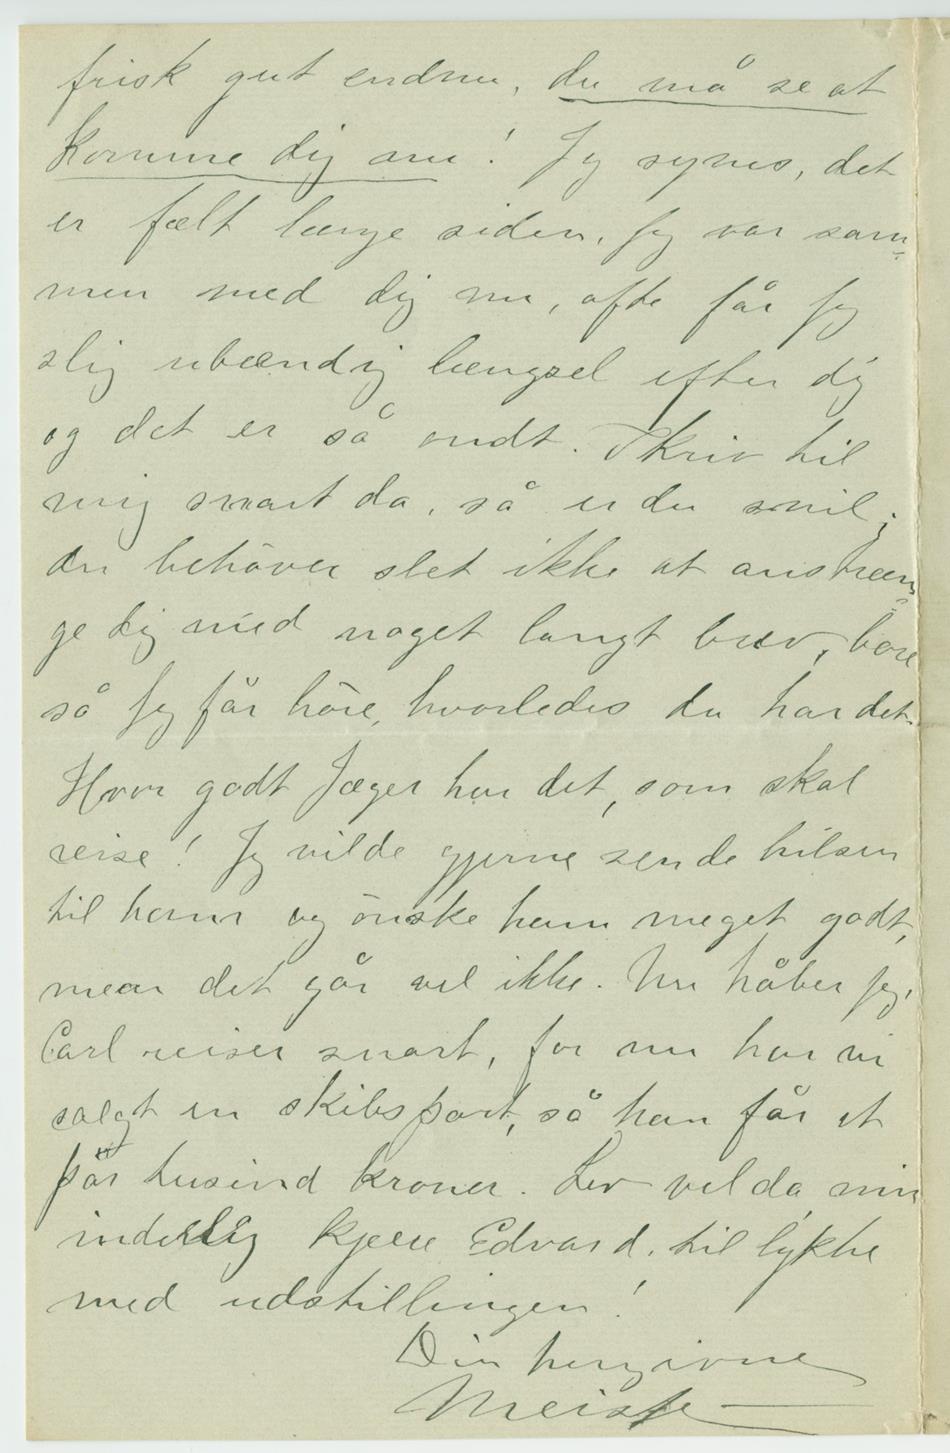 frisk gut endnu, du må se at
komme dig nu! Jeg synes, det
er fælt længe siden, jeg var sam-
men med dig nu, ofte får jeg
slig ubændig længsel efter dig
og det er så ondt. Skriv til
mig snart da, så er du snil;
du behöver slet ikke at anstræn-
ge dig med noget langt brev, bare
så jeg får höre, hvorledes du har det.
Hvor godt Jæger har det, som skal
reise! Jeg vilde gjerne sende hilsen
til ham og önske ham meget godt,
men det går vel ikke. Nu håber jeg,
Carl reiser snart, for nu har vi
solgt en skibspart, så han får et
par tusind kroner. Lev vel da min
inderlig kjære Edvard, til lykke
med udstillingen!
Din hengivne